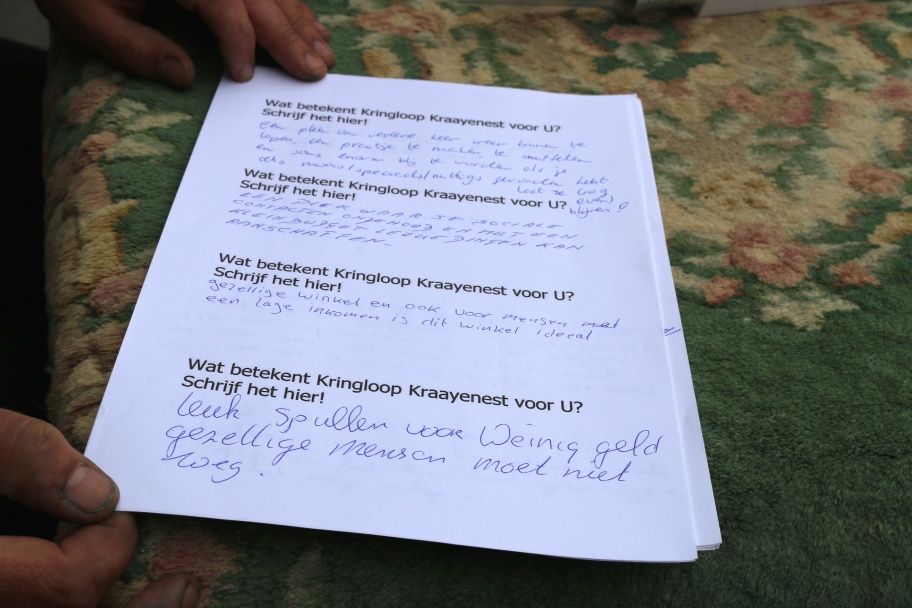 Wat betekent Kringloop Kraayenest voor U?
Schrijf het hier!
Een plek om iedere keer weer binnen te
lopen, een praatje te maken, te snuffelen
en soms enorm blij te worden als je
iets moois/speciaals/nuttigs gevonden hebt.
Laat ze (nog
even)
blijven!
Wat betekent Kringloop Kraayenest voor U?
Schrijf het hier!
EEN PLEK WAAR JE SOCIALE
CONTACTEN ONDERHOUD EN MET EEN
KLEIN BUDGET LEUKE DINGEN KAN
AANSCHAFFEN.
Wat betekent Kringloop Kraayenest voor U?
Schrijf het hier!
gezellige winkel en ook voor mensen met
een lage inkomen is dit winkel ideaal.
Wat betekent Kringloop Kraayenest voor U?
Schrijf het hier!
leuk spullen voor Weinig geld
gezellige mensen moet niet
weg.